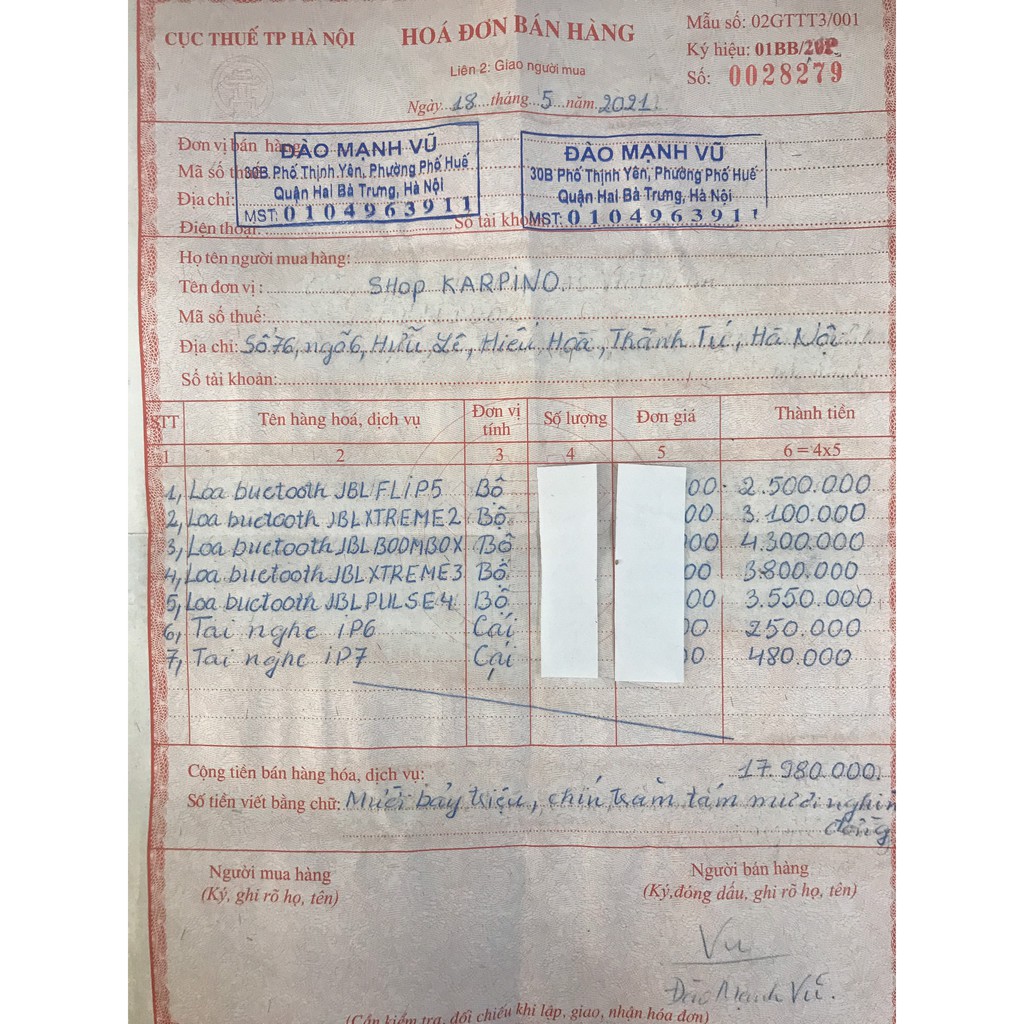 CỤC THUẾ TP HÀ NỘI
HOÁ ĐƠN BÁN HÀNG
Liên 2: Giao người mua
Ngày 18 tháng 5 năm 2021
Mẫu số: 02GTTT3/001
Ký hiệu: 01BB/20P
Số: 0028279
Đơn vị bán hàng
Mã số thuế
Địa chỉ:
Điện thoại:
Số tài khoản
ĐÀO MẠNH VŨ
30B Phố Thịnh Yên, Phường Phố Huế
Quận Hai Bà Trưng, Hà Nội
MST: 0104963911
ĐÀO MẠNH VŨ
30B Phố Thịnh Yên, Phường Phố Huế
Quận Hai Bà Trưng, Hà Nội
MST: 0104963911
Họ tên người mua hàng:
Tên đơn vị: SHOP KARPINO
Mã số thuế:
Địa chỉ: Số 76, ngõ 6, Hữu Lê, Hiếu Hoà, Thành Trí, Hà Nội
Số tài khoản:
STT Tên hàng hoá, dịch vụ Đơn vị tính Số lượng Đơn giá Thành tiền
1 2 3 4 5 6 = 4x5
1, Loa buctooth JBL FLIP5 Bộ 00 2.500.000
2, Loa buctooth JBL XTREME2 Bộ 00 3.100.000
3, Loa buctooth JBL BOOMBOX Bộ 00 4.300.000
4, Loa buctooth JBL XTREME3 Bộ 00 3.800.000
5, Loa buctooth JBL PULSE4 Bộ 00 3.550.000
6, Tai nghe iP6 Cái 00 250.000
7, Tai nghe iP7 Cái 0 480.000
Cộng tiền bán hàng hóa, dịch vụ: 17.980.000
Số tiền viết bằng chữ: Mười bảy triệu, chín trăm tám mươi nghìn
đồng
Người mua hàng
(Ký, ghi rõ họ, tên)
Người bán hàng
(Ký, đóng dấu, ghi rõ họ, tên)
Vu
Đào Mạnh Vũ.
(Cần kiểm tra, đối chiếu khi lập, giao, nhận hóa đơn)